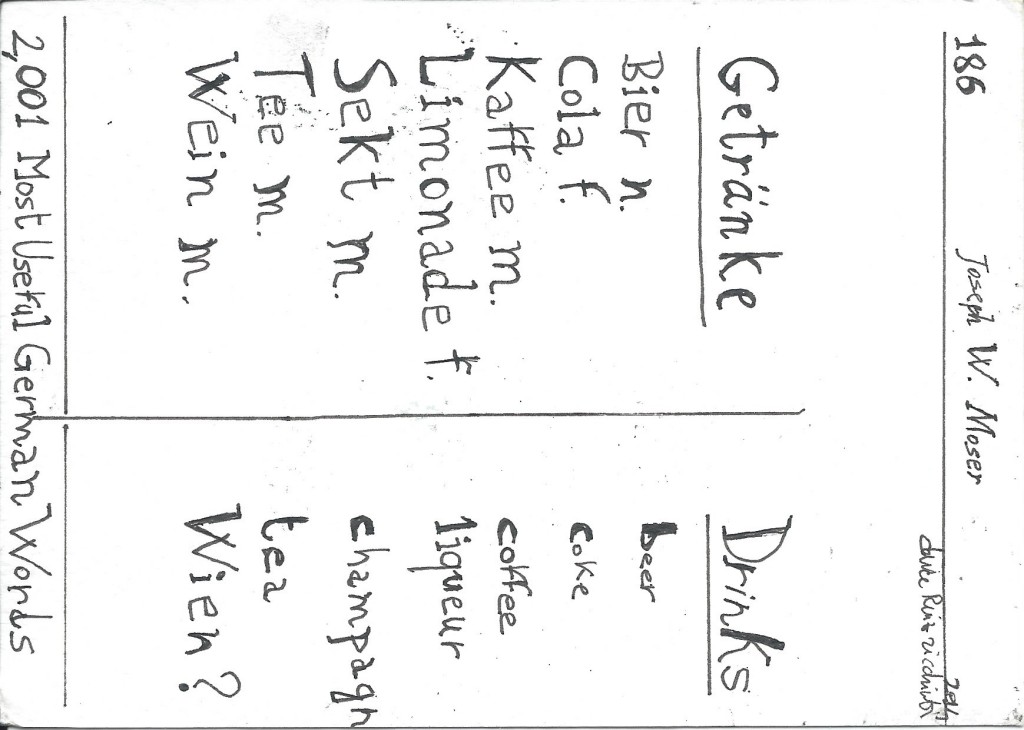 186 Joseph W. Moser
2014
Getränke Drinks
Bier n. beer
Cola f. coke
Kaffee m. coffee
Limonade f. liqueur
Sekt m. champagn
Tee m. tea
Wein m. Wien?
2,001 Most Useful German Words